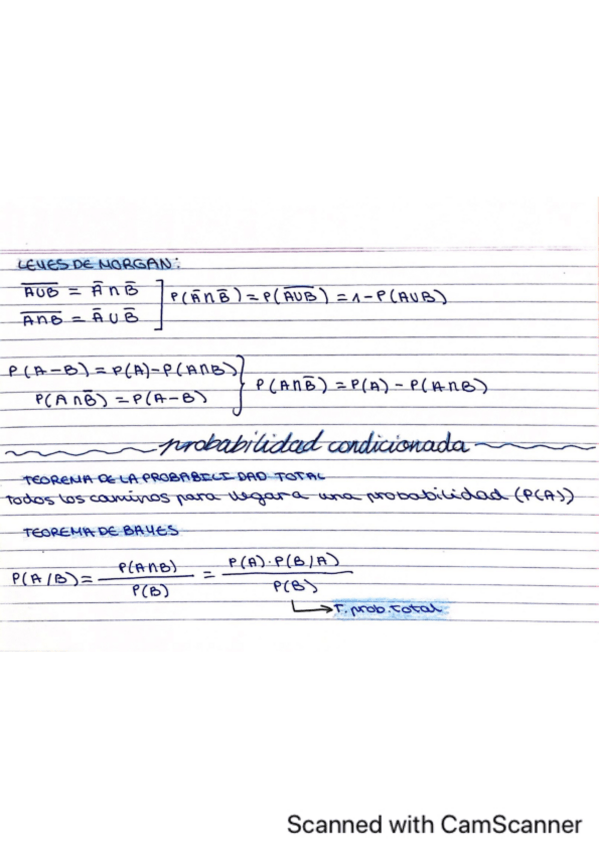 LEYES DE MORGAN:
A̅U̅B̅ = A̅ ∩ B̅
P(A̅∩B̅) = P(A̅U̅B̅) = 1 - P(AUB)
A̅∩̅B̅ = A̅ U B̅
P(A-B) = P(A)-P(A∩B)
P(A∩B̅) = P(A) - P(A∩B)
P(A∩B̅) = P(A-B)
probabilidad condicionada
TEOREMA DE LA PROBABILIDAD TOTAL
todos los caminos para llegar a una probabilidad (P(A))
TEOREMA DE BAYES
P(A/B) = P(A∩B) / P(B) = P(A)·P(B/A) / P(B)
T. prob. total
Scanned with CamScanner